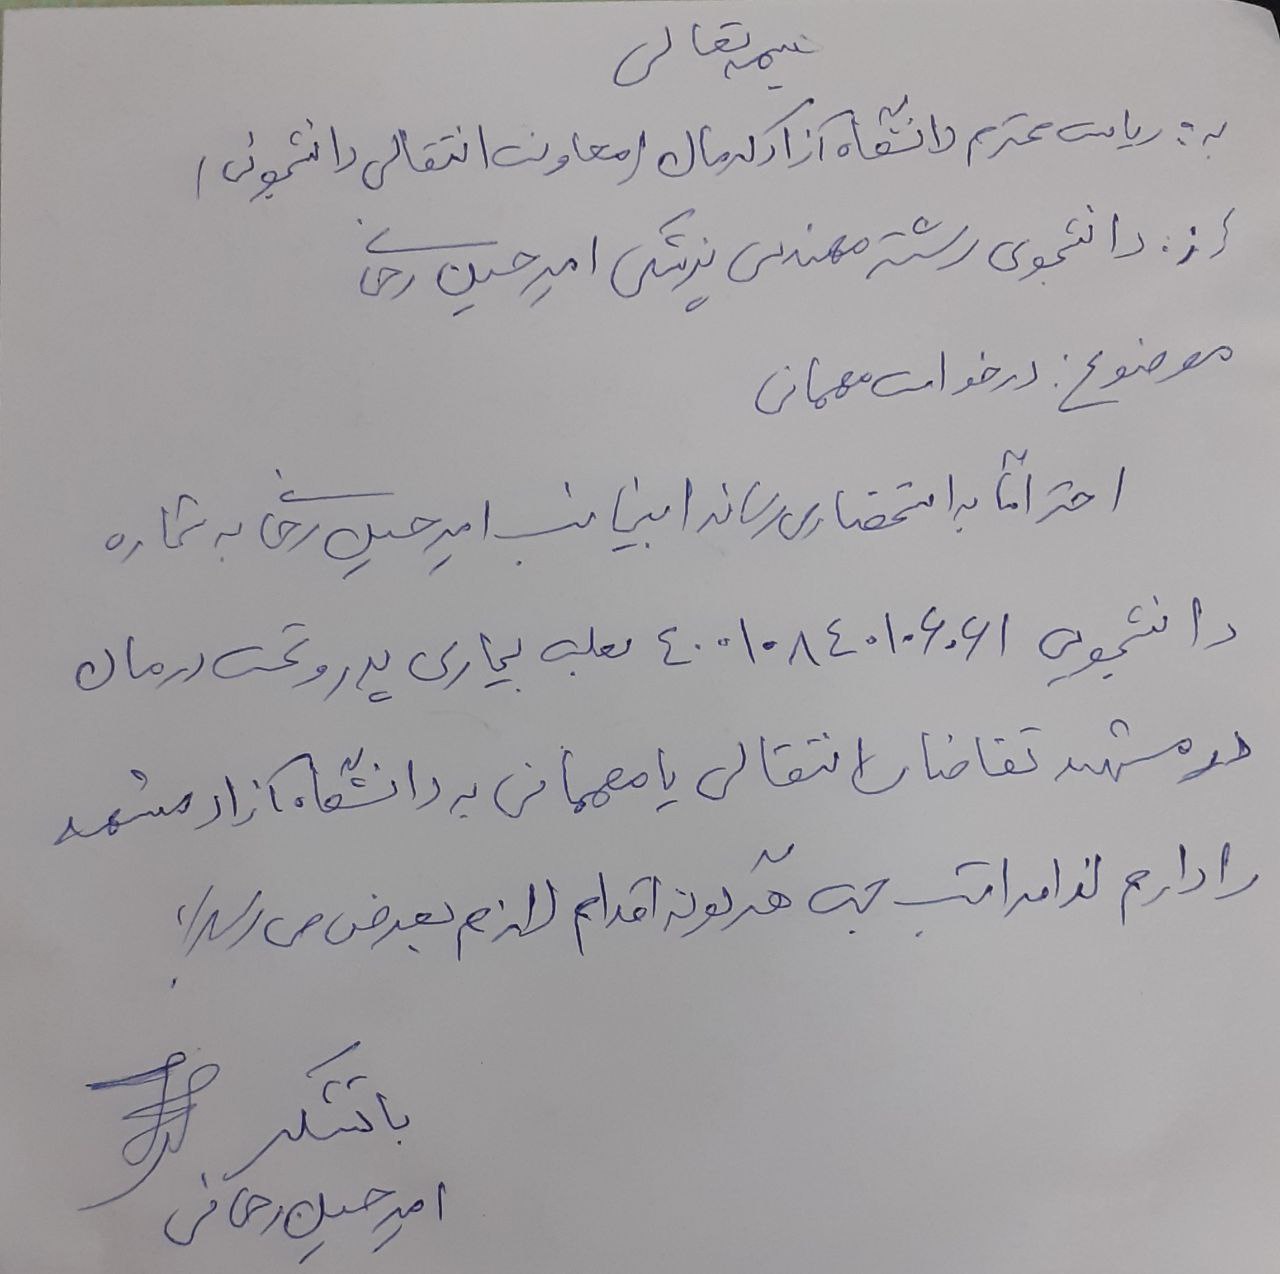 بسمه تعالی
به: ریاست محترم دانشگاه آزاد کرمان (معاونت انتقالی دانشجویی)
از: دانشجوی رشته مهندسی پزشکی امیرحسین رجائی
موضوع: درخواست مهمانی
احتراماً به استحضار می رساند اینجانب امیرحسین رجائی به شماره
دانشجویی ۴۰۰۱۰۸۴۰۱۰۶۰۶۱ بعلت بیماری پدر و تحت درمان
در مشهد تقاضای انتقالی یا مهمانی به دانشگاه آزاد مشهد
را دارم لذا مراتب جهت هرگونه اقدام لازم بعرض می رسد
با تشکر
امیرحسین رجائی